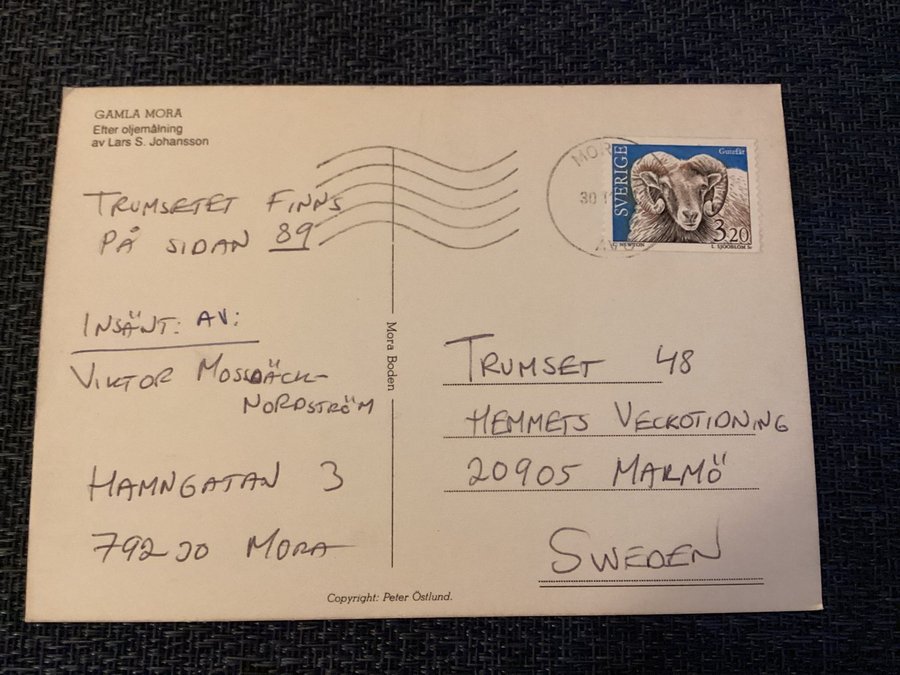 GAMLA MORA
Efter oljemålning
av Lars S. Johansson
TRUMSETET FINNS
PÅ SIDAN 89
INSÄNT: AV:
VIKTOR
NORDSTRÖM
HAMNGATAN 3
792 30 MORA
Mora Boden
Copyright: Peter Östlund.
MOR
30
SVERIGE
Gutefår
3.20
C. NEWTON
L. SJÖÖBLOM SC
TRUMSET 48
HEMMETS VECKOTIDNING
20905 MARMÖ
SWEDEN